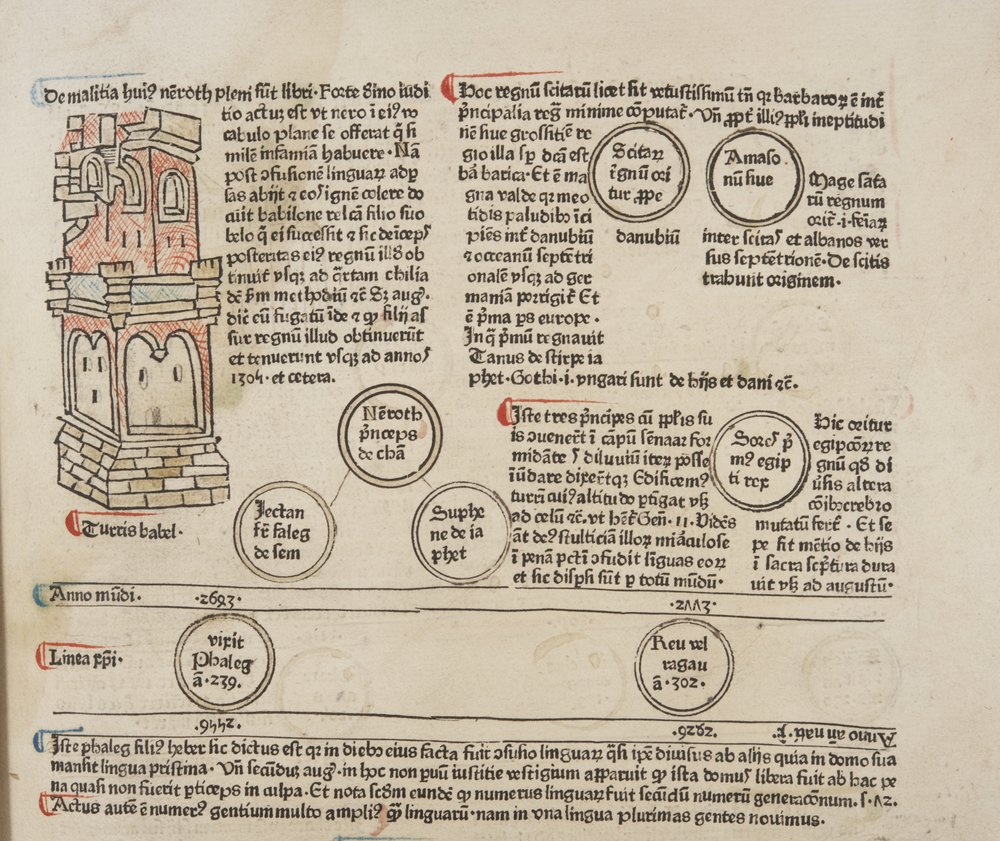 De malitia huiꝰ nēroth pleni sūt libri· Forte dīno iudi
tio actuꝫ est vt nero ī eiꝰ vo
cabulo plane se offerat q̄ si
milē infamiā habuere· Nā
post ɔfusionē linguaꝝ adp̱
sas abijt ⁊ eoꝰ ignē colere do
cuit babilone relcā filio suo
belo q̄ ei successit ⁊ sic deīcepꝰ
posteritas eiꝰ regnū illḋ ob
tinuit vsqꝫ ad q̄rtam chilia
dē ẜm methodiū ⁊c̄ Sꝫ augꝰ·
dic̄ eū fugatū īde ⁊ ꝙ filij as
sur regnū illud obtinuerūt
et tenuerunt vsqꝫ ad annoꝰ
1304· et cetera·
Turris babel·
Nēroth
p̄nceps
de chā
Iectan
fr̄ faleg
de sem
Suphe
ne de ia
phet
Hoc regnū scitaꝝ licet sit vetustissimū tn̄ qꝛ barbaroꝝ ē int̄
p̄ncipalia reḡ minime cōputat̄· Vn̄ ꝓpt̄ illiꝰ ppl̄i ineptitudi
nē siue grossitiē re
gio illa sp̱ dcā est
ba᷒ barica· Et ē ma
gna valde qꝛ meo
tidis paludibꝰ īci
piēs int̄ danubiū
⁊ oceanū septētri
onalē vsqꝫ ad ger
maniā porrigit̄ Et
ē p̄ma ps europe·
In q̄ p̄mū regnauit
Tanus de stirpe ia
phet· Gothi·i· vngari sunt de hijs et dani ⁊c̄·
Scitaꝝ
r̄gnū ori
tur ꝓpe
danubiū
Amaso
nū siue
Mage sāta
rū regnum
orit̄·i·feīaꝝ
inter scitaꝰ et albanos ver
sus septētrionē· De scitis
trabunt originem·
Iste tres p̄ncipes cū ppl̄is su
is ɔuenert̄ ī cāpū sēnaar for
midāte ꝰ diluuiū iteꝝ posse
īūdare dixert̄qꝫ Edificemꝰ
turrī cuiꝰ altitudo ꝑtigat vsqꝫ
ad celū ⁊c̄· vt hēt̄ Gen̄· 11· Vidēs
āt deꝰ stulticiā illoꝝ miāculose
ī penā pctī ɔfudit līguas eoꝝ
et sic disꝑsi sūt ꝑ totū mūdū·
Soreꝰ p̄
mꝰ egip
ti rex
Hic oritur
egipcoꝝ re
gnū qḋ di
uīsis altera
cōibꝰ crebro
mutatū fert̄· Et se
pe fit mētio de hijs
ī sacra scp̄tura dura
uit vsqꝫ ad augustū·
Anno mūdi· ·2693· ·2773·
Linea xp̄i·
vixit
Phaleg
ā·239·
Reu vel
ragau
ā·302·
·9442· ·9262· Anno an̄ natī· xp̄i·
Iste phaleg filiꝰ heber sic dictus est qꝛ in diebꝰ eius facta fuit ɔfusio linguaꝝ q̄si ip̄e diuisus ab alijs quia in domo sua
mansit lingua pristina· Vn̄ secūduꝫ augꝰ·in hoc non puū iustitie vestigium apparuit ꝙ ista domꝰ libera fuit ab hac pe
na quasi non fuerit ꝑticeps in culpa· Et nota scḋm eundē ꝙ numerus linguaꝝ fuit secūdū numerū generacōnum· s·72·
Actus autē ē numerꝰ gentium multo ampliꝰ qᷓ linguarū· nam in vna lingua plurimas gentes nouimus·